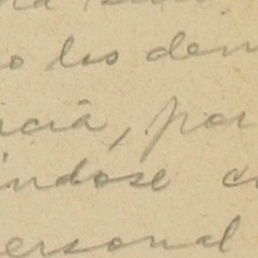 o los dem
acia, por
índose c
ersonal